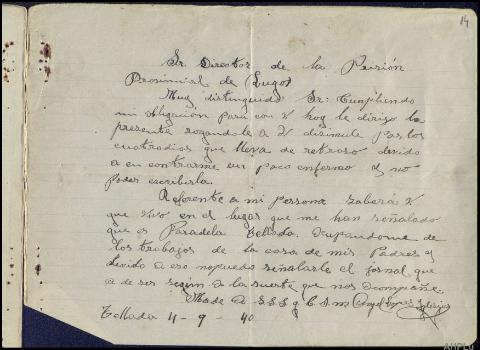 14
Sr. Director de la Prisión
Provincial de (Lugo)
Muy distinguido Sr: Cunpliendo
mi obligación para con V hoy le dirijo la
presente rogandole a V disimule las los
cuatrodias que lleva de retraso devido
a en contrarme un poco enfermo y no
poder escribirla.
Referente a mi persona zaberá V
que vivo en el lugar que me han señalado
que es Paradela Tellada. Ocupandome de
los trabajos de la casa de mis Padres y
devido a eso nopuedo señalarle el jornal que
a de ser segun a la suerte que nos aconpañe.
Made a S.S.S q E.S.m
Tellada 4-9-40